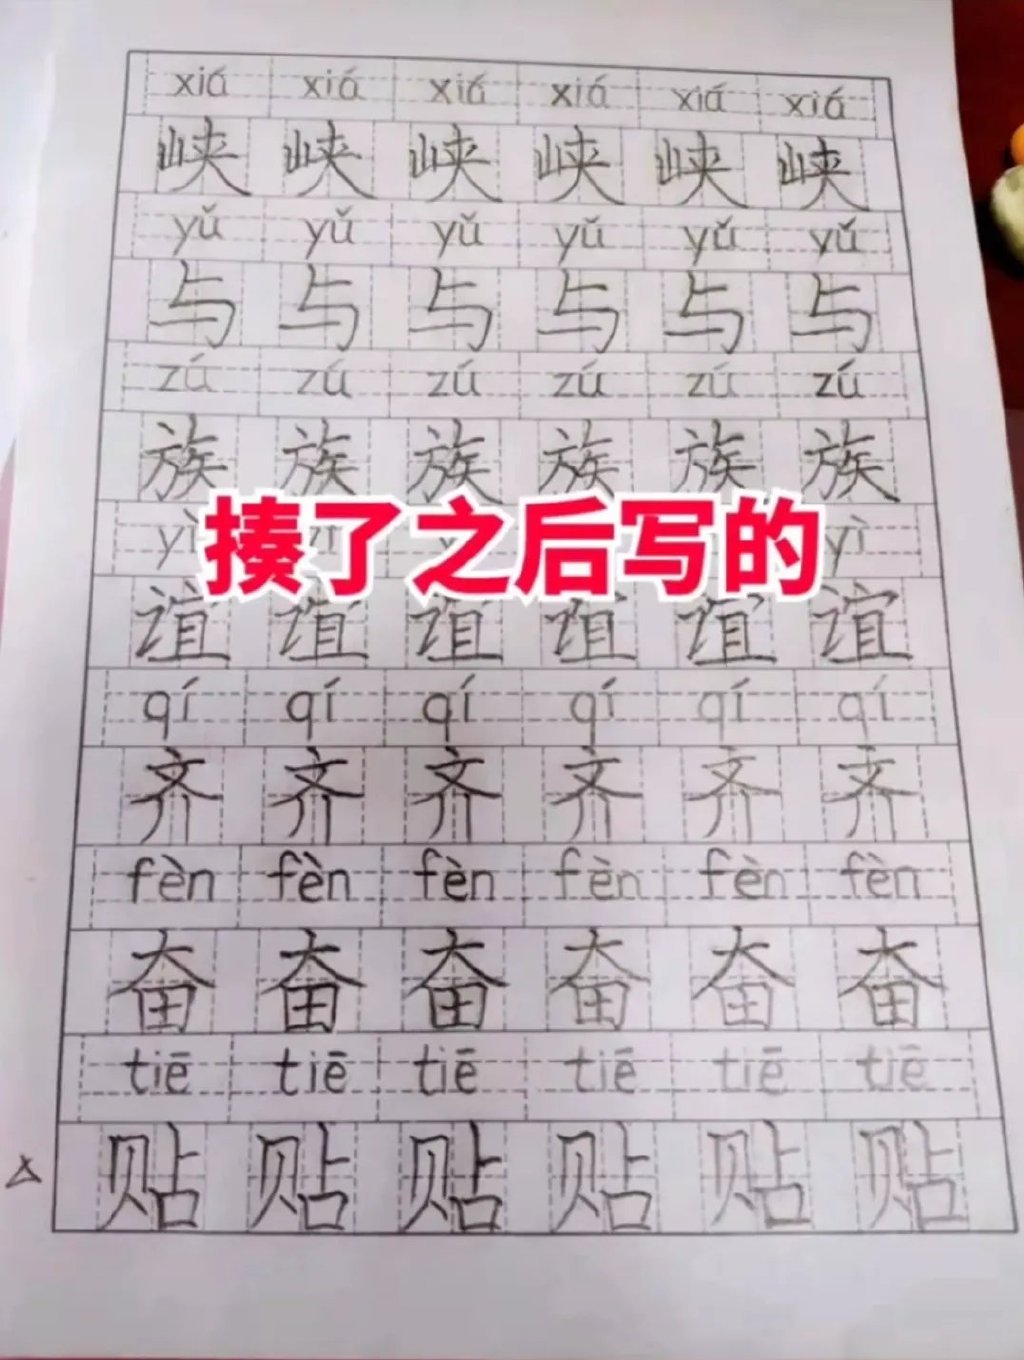 xiá xiá xiá xiá xiá xiá
峡 峡 峡 峡 峡 峡
yǔ yǔ yǔ yǔ yǔ yǔ
与 与 与 与 与 与
zú zú zú zú zú zú
族 族 族 族 族 族
yì yì
揍了之后写的
谊 谊 谊 谊 谊 谊
qí qí qí qí qí qí
齐 齐 齐 齐 齐 齐
fèn fèn fèn fèn fèn fèn
奋 奋 奋 奋 奋 奋
tiē tiē tiē tiē tiē tiē
贴 贴 贴 贴 贴 贴